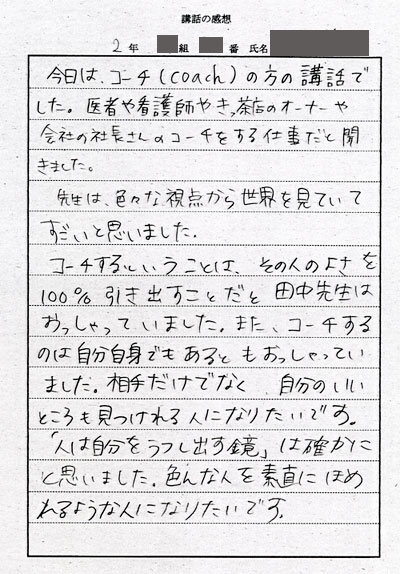 講話の感想
2年 組 番 氏名
今日は、コーチ(coach)の方の講話で
した。医者や看護師やきっ茶店のオーナーや
会社の社長さんのコーチをする仕事だと聞
きました。
先生は、色々な視点から世界を見ていて
すごいと思いました。
コーチするということは、その人のよさを
100%引き出すことだと田中先生は
おっしゃっていました。また、コーチする
のは自分自身でもあるともおっしゃってい
ました。相手だけでなく、自分のいい
ところも見つけれる人になりたいです。
「人は自分をうつし出す鏡」は確かに
と思いました。色んな人を素直にほめ
れるような人になりたいです。